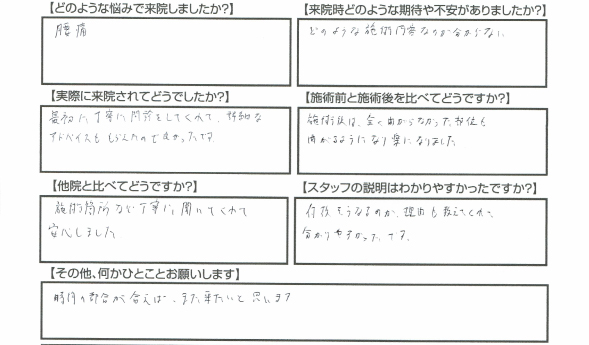 【どのような悩みで来院しましたか?】
腰痛
【来院時どのような期待や不安がありましたか?】
どのような施術内容なのか分からない
【実際に来院されてどうでしたか?】
最初に丁寧に問診をしてくれて、詳細な
アドバイスももらえたので良かったです
【施術前と施術後を比べてどうですか?】
施術後は、全く曲がらなかった部位も
曲がるようになり楽になりました
【他院と比べてどうですか?】
施術箇所など丁寧に聞いてくれて
安心しました
【スタッフの説明はわかりやすかったですか?】
何故そうなるのか、理由も教えてくれて
分かりやすかったです。
【その他、何かひとことお願いします】
時間の都合が合えば、また来たいと思います